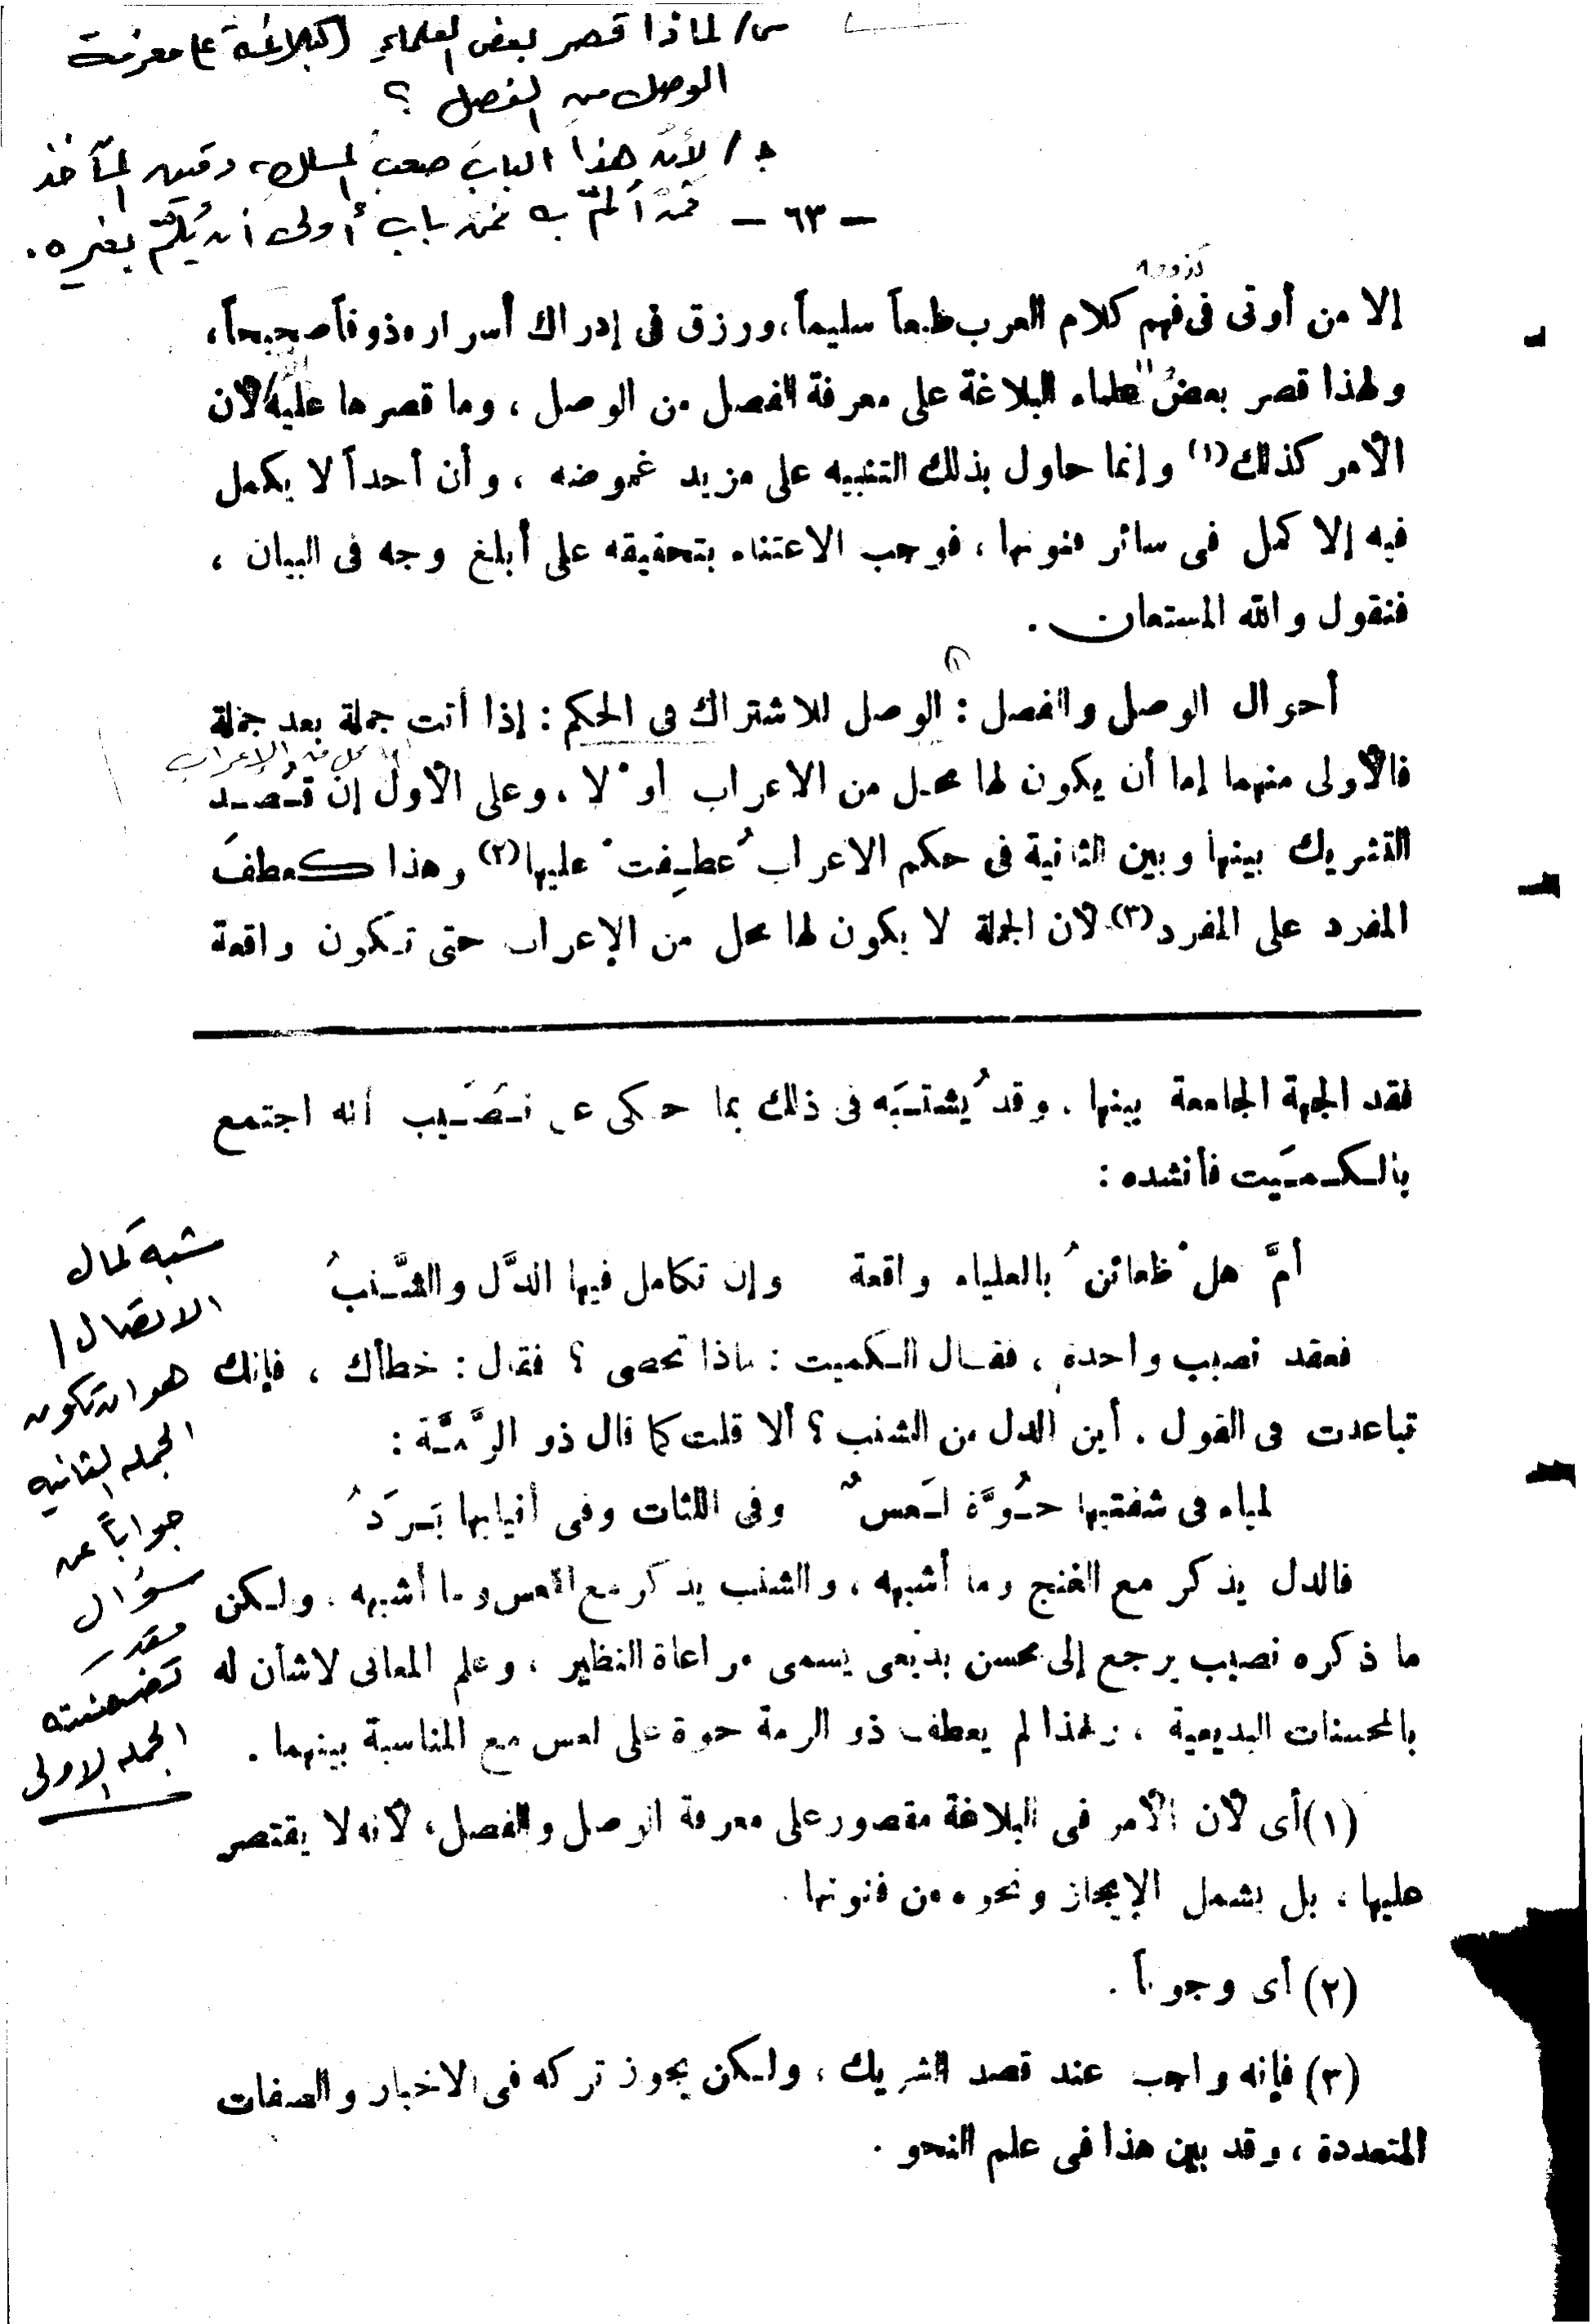 س/ لماذا قصر بعض العلماء البلاغة على معرفة
الوصل من الفصل ؟
ج/ لأن هذا الباب صعب المسلك، دقيق المأخذ
فمن ألمّ به فمن باب أولى أن يُلمّ بغيره.
— ٦٣ —
إلا من أوتى فى فهم كلام العرب طبعاً سليماً، ورزق فى إدراك أسراره ذوقاً صحيحاً،
ولهذا قصر بعضُ العلماء البلاغة على معرفة الفصل من الوصل ، وما قصرها عليه لأن
الأمر كذلك(١) وإنما حاول بذلك التنبيه على مزيد غموضه ، وأن أحداً لا يكمل
فيه إلا كمل فى سائر فنونها ، فوجب الاعتناء بتحقيقه على أبلغ وجه فى البيان ،
فنقول والله المستعان .
أحوال الوصل والفصل : الوصل للاشتراك فى الحكم : إذا أتت جملة بعد جملة
محل من الإعراب
فالأولى منهما إما أن يكون لها محل من الاعراب أوْ لا ، وعلى الأول إن قُصد
التشريك بينها وبين الثانية فى حكم الاعراب عُطِفتْ عليها(٢) وهذا كعطف
المفرد على المفرد(٣) لأن الجملة لا يكون لها محل من الإعراب حتى تكون واقعة
لفقد الجهة الجامعة بينها . وقد يُشتبَه فى ذلك بما حكى عن نُصَيب أنه اجتمع
بالكُمَيت فأنشده :
أمَّ هلْ ظعائنُ بالعلياء واقعة وإن تكامل فيها الدَّل والشَّنبُ
فعقد نصيب واحدة ، فقال الكميت : ماذا تحصى ؟ فقال : خطأك ، فإنك
تباعدت فى القول . أين الدل من الشنب ؟ ألا قلت كما قال ذو الرُّمَّة :
لمياء فى شفتيها حُوَّة لَعسٌ وفى اللثات وفى أنيابها بَرَدُ
فالدل يذكر مع الغنج وما أشبهه ، والشنب يذكر مع اللعس وما أشبهه . ولكن
ما ذكره نصيب يرجع إلى محسن بديعى يسمى مراعاة النظير ، وعلم المعانى لا شأن له
بالمحسنات البديعية ، ولهذا لم يعطف ذو الرمة حوة على لعس مع المناسبة بينهما .
شبه كمال
الاتصال/
هو ان تكون
الجملة الثانية
جواباً عن
سؤال
مقدر
تضمنته
الجملة الاولى
(١) أى لأن الأمر فى البلاغة مقصور على معرفة الوصل والفصل ، لأنه لا يقتصر
عليها ، بل يشمل الإيجاز ونحوه من فنونها .
(٢) أى وجوباً .
(٣) فإنه واجب عند قصد التشريك ، ولكن يجوز تركه فى الاخبار والصفات
المتعددة ، وقد بين هذا فى علم النحو .